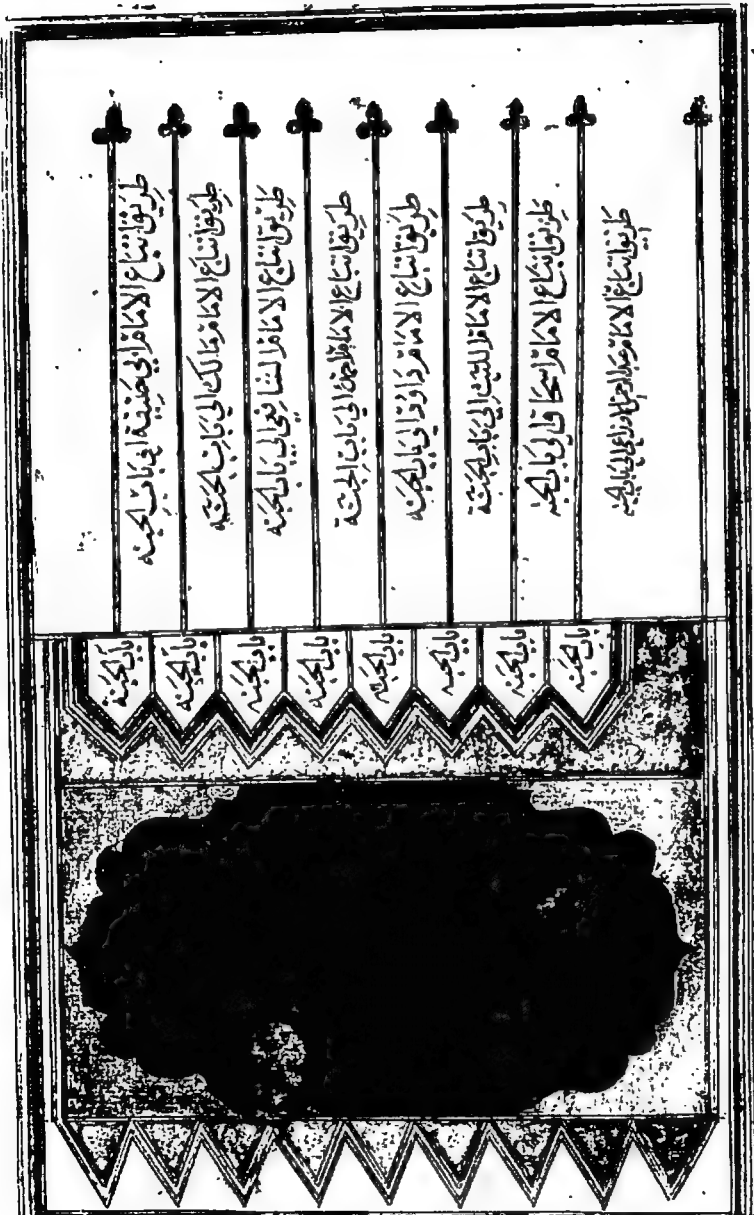 طَرِيقُ اتِّبَاعِ الامَامِ ابِي حَنِيفَةَ الي بَابِ الجنه
طَرِيقُ اتِّبَاعِ الامَامِ مَالِك الي بَابِ الجَنَّه
طَرِيقُ اتِّبَاعِ الامَامِ الشَافِعِي الي بَابِ الجَنه
طَرِيقُ اتِّبَاعِ الامَامِ احمد الي بَابِ الجَنَّة
طَرِيقُ اتِّبَاعِ الامَامِ دَاوُد الي بَابِ الجَنَه
طَرِيقُ اتِّبَاعِ الامَامِ الليث الي بَابِ الجَنَّة
طَرِيقُ اتِّبَاعِ الامَامِ اسحاق الي بَابِ الجَنه
طَرِيقُ اتِّبَاعِ الامَامِ الي بَابِ الجنه
بَابُ الجَنَّة
بَابُ الجَنَه
بَابُ الجَنَه
بَابُ الجَنَه
بَابُ الجَنَه
بَابُ الجَنَه
بَابُ الجَنَه
بَابُ الجَنَه